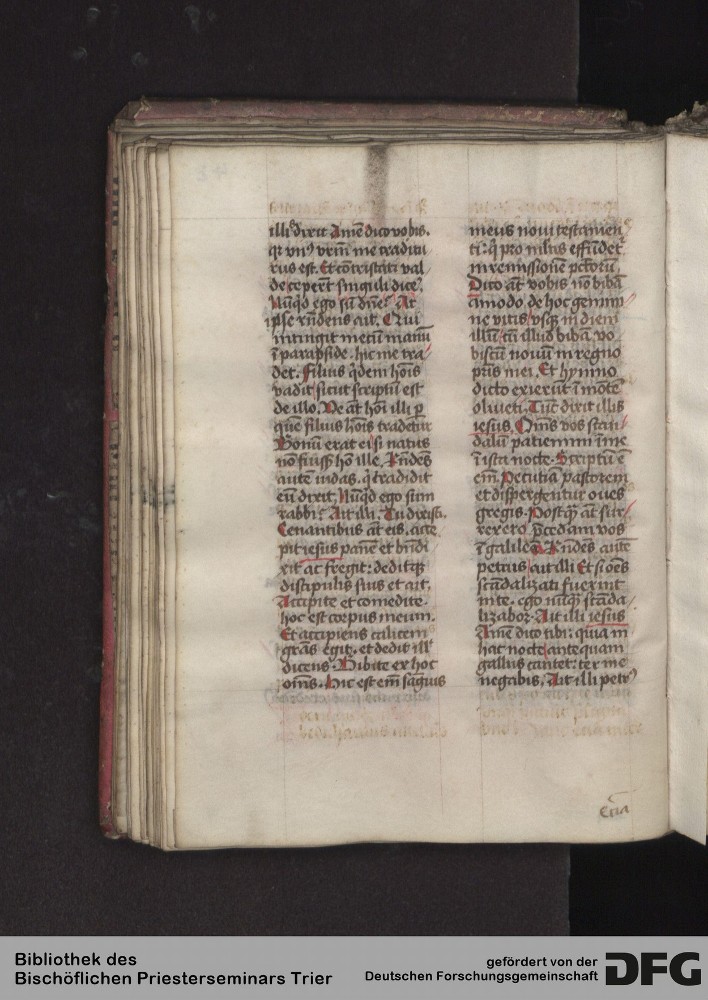 illis dixit Amē dico vobis.
qr vnꝰ vrm̄ me traditu
rus est. Et cōtristati val
de ceperūt singuli dicē.
Nūqd ego sū dn̄e? At
ipse rn̄dens ait. Qui
intingit mecū manū
ī parapside. hic me tra
det. filius qdem hoīs
vadit sicut scriptū est
de illo. Ve āt hoī illi p
quē filius hoīs tradetur
Bonū erat ei si natus
nō fuiss; hō ille. Rn̄dēs
autē iudas. q tradidit
eū dixit. Nūqd ego sum
rabbi? Ait illi. Tu dixisti.
Cenantibus āt eis. acce
pit iesus panē et bn̄di
xit ac fregit: deditqꝫ
discipulis suis et ait.
Accipite et comedite.
hoc est corpus meum.
Et accipiens calicem
gr̄as egit. et dedit ill
dicens. Bibite ex hoc
om̄s. hic est em̄ sāguis
meus noui testamen
ti: q pro mltis effūdet
in remissionē pctorū.
Dico āt vobis nō bibā
āmodo. de hoc genimi
ne vitis vsqꝫ in diem
illū: cū illud bibā vo
biscū nouū in regno
pr̄is mei. Et hymno
dicto exierūt ī mōtē
oliueti. Tūc dixit illis
iesus. Om̄s vos scan
dalū patiemini ī me
ī ista nocte. Scriptū ē
em̄. Pecutiā pastorem
et dispergentur oues
gregis. Postqꝫ āt sur
rexero. p̄cedam vos
ī galileā. Rn̄des autē
petrus ait illi Et si oēs
scādalizati fuerint
in te. ego nūqꝫ scāda
lizabor. Ait illi iesus
Amē dico tibi: quia in
hac nocte antequam
gallus cantet: ter me
negabis. Ait illi petrꝰ
Etiā
Bibliothek des
Bischöflichen Priesterseminars Trier
gefördert von der
Deutschen Forschungsgemeinschaft
DFG